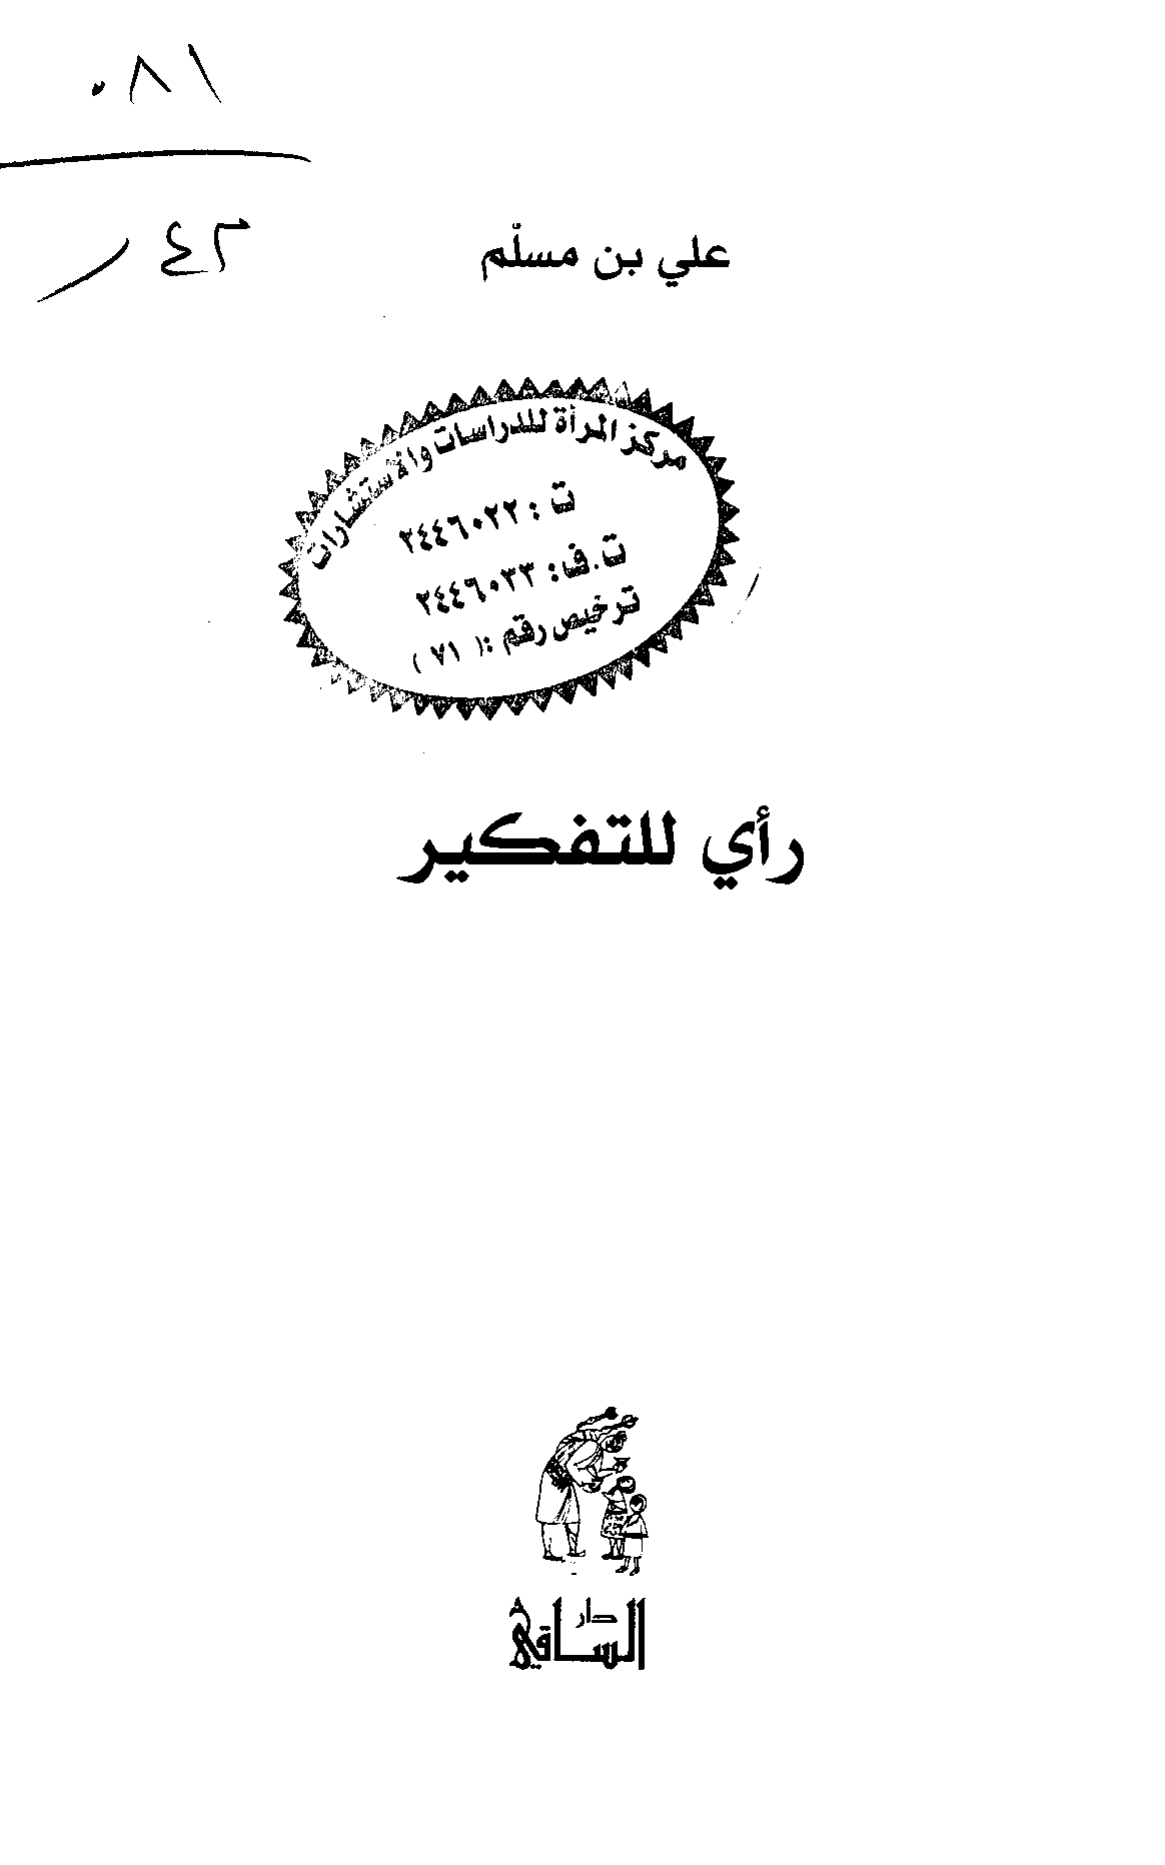 ٠٨١
٤٢
علي بن مسلّم
مركز المرأة للدراسات والاستشارات
ت : ٢٤٤٦٠٢٢
ت.ف: ٢٤٤٦٠٣٣
ترخيص رقم :( ٧١ )
رأي للتفكير
دار
الساقي